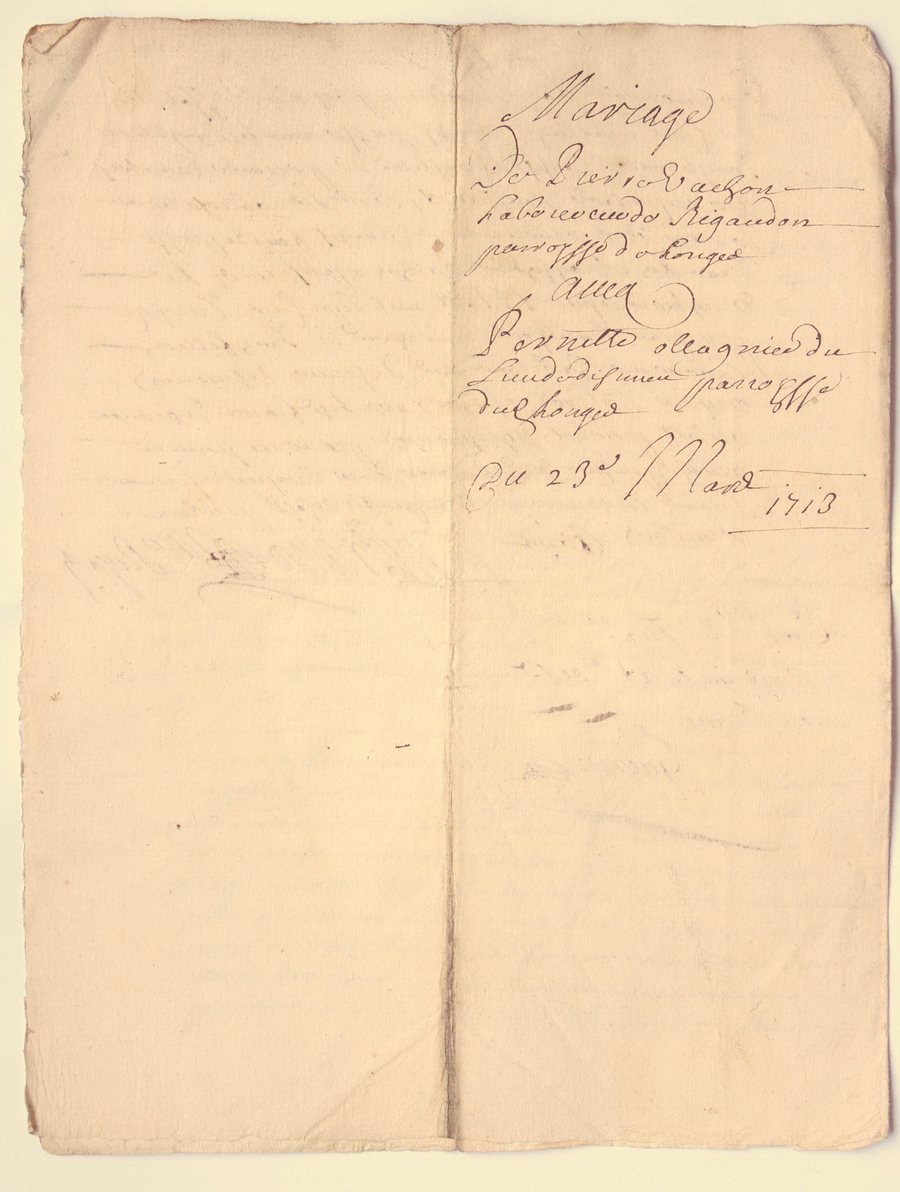 Mariage
De Pierre Vachon
Laboureur de Rigaudon
parroisse de Longes
Auec
Pernette ollagnier du
Lieu de parroisse
du Longes
Du 23e Mars
1713